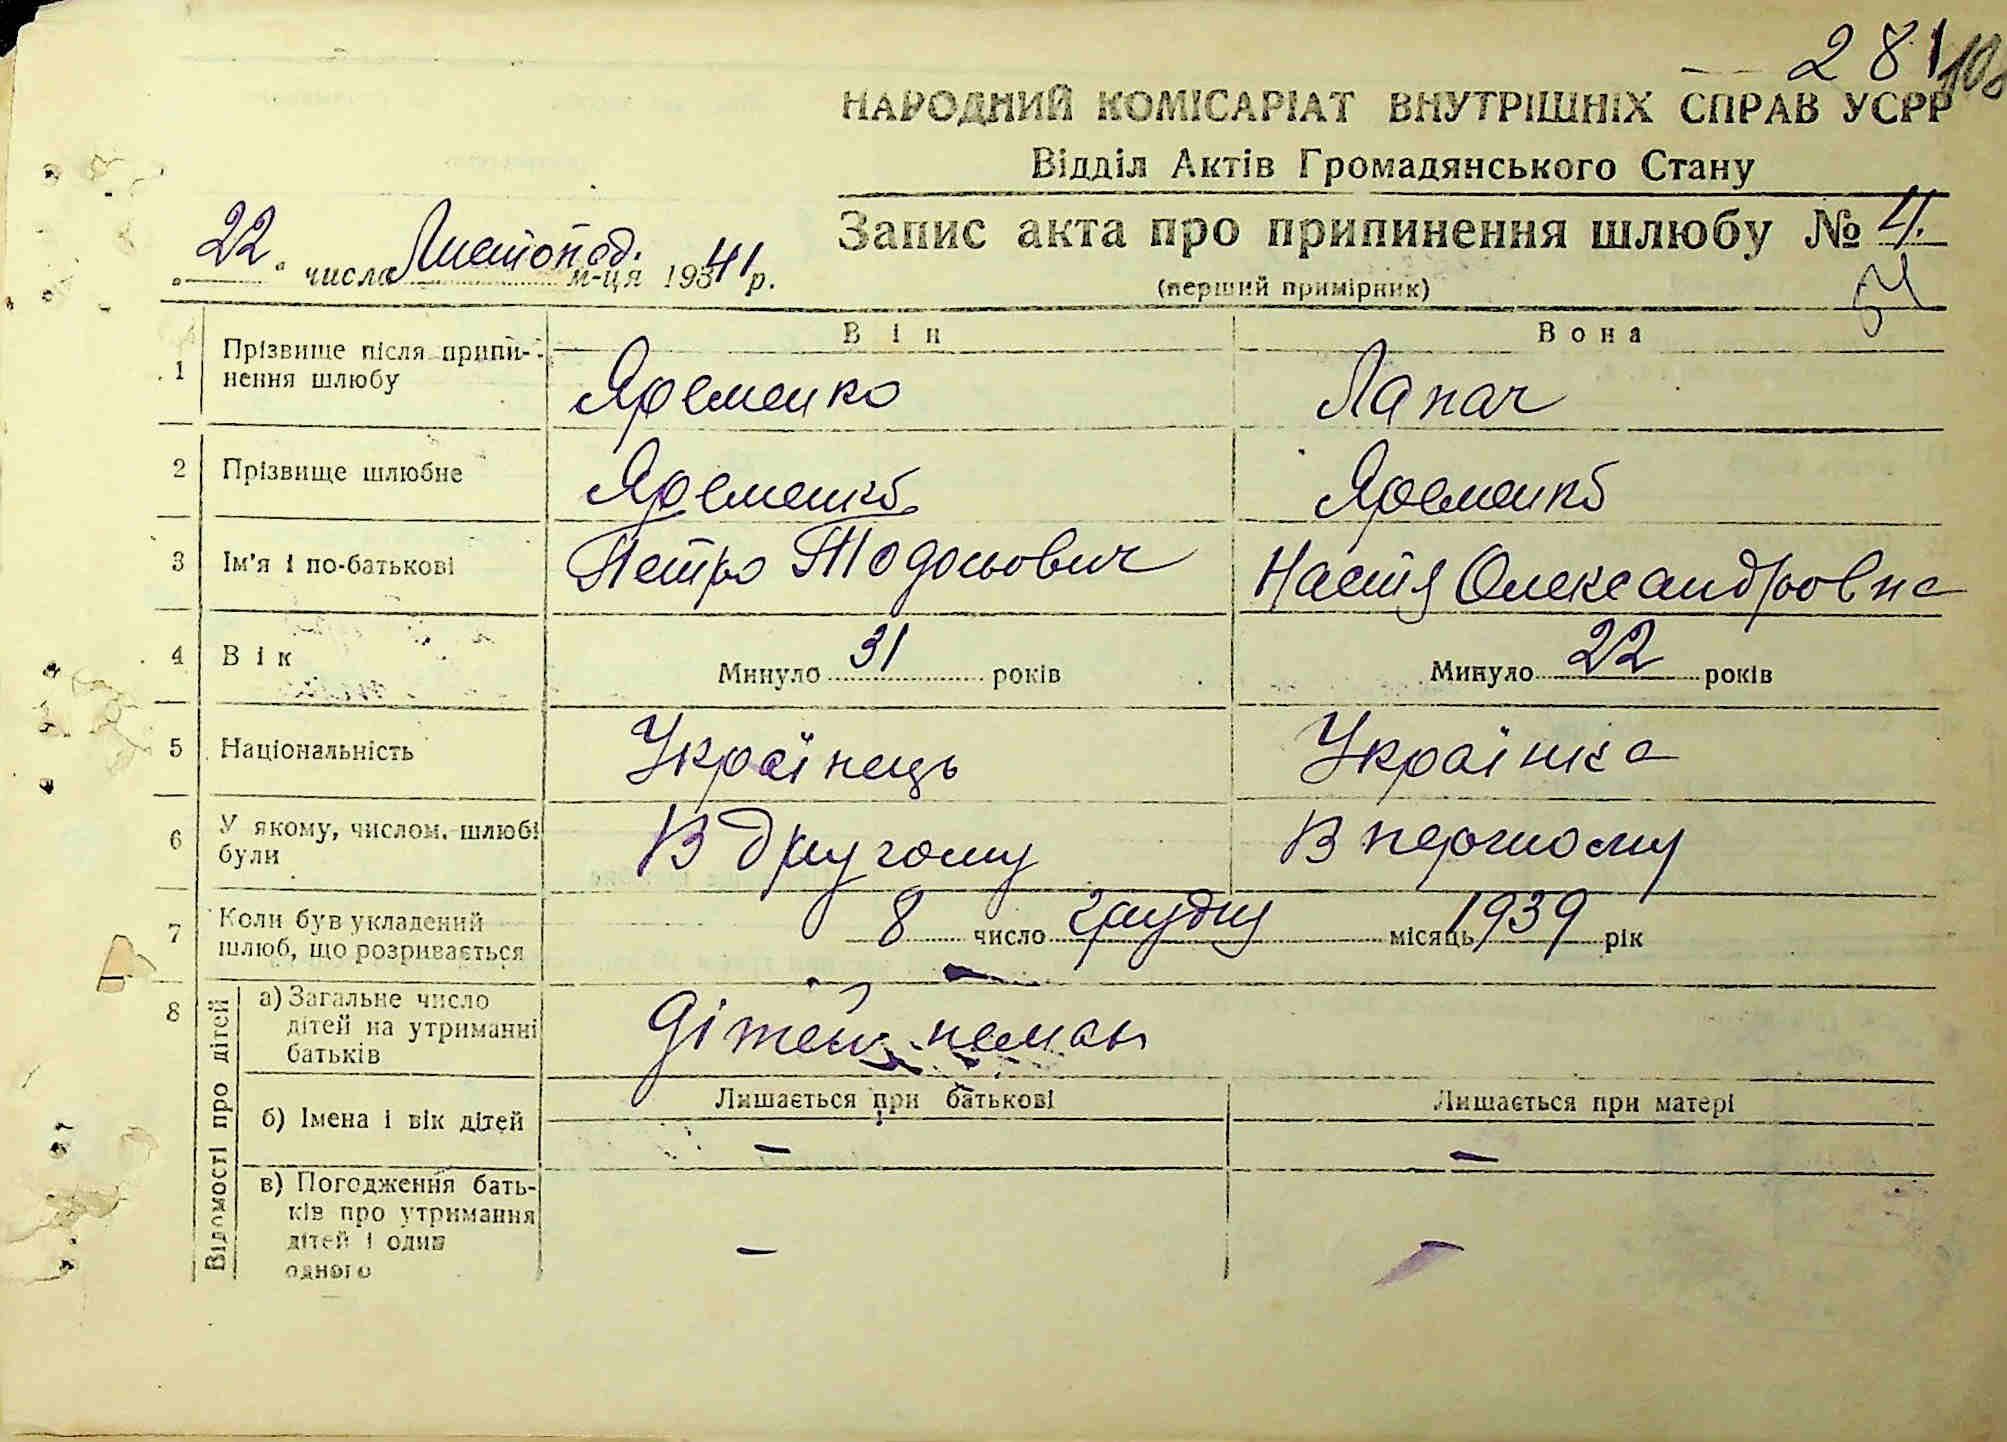 281
НАРОДНИЙ КОМІСАРІАТ ВНУТРІШНІХ СПРАВ УСРР
Відділ Актів Громадянського Стану
Запис акта про припинення шлюбу № 4.
(перший примірник)
„ 22 " числа Листопад. м-ця 1941 р.
Він
Вона
1 Прізвище після припи-
нення шлюбу
Яременко
Лапач
2 Прізвище шлюбне
Яременко
Яременко
3 Ім'я і по-батькові
Петро Тодосьович
Настя Олександровна
4 Вік
Минуло 31 років
Минуло 22 років
5 Національність
Українець
Українка
6 У якому, числом. шлюбі
були
В другому
В першому
7 Коли був укладений
шлюб, що розривається
8 число грудня місяць 1939 рік
8 Відомості про дітей
а) Загальне число
дітей на утриманні
батьків
Дітей немає
б) Імена і вік дітей
Лишається при батькові
Лишається при матері
–
–
в) Погодження бать-
ків про утримання
дітей і один
одного
–